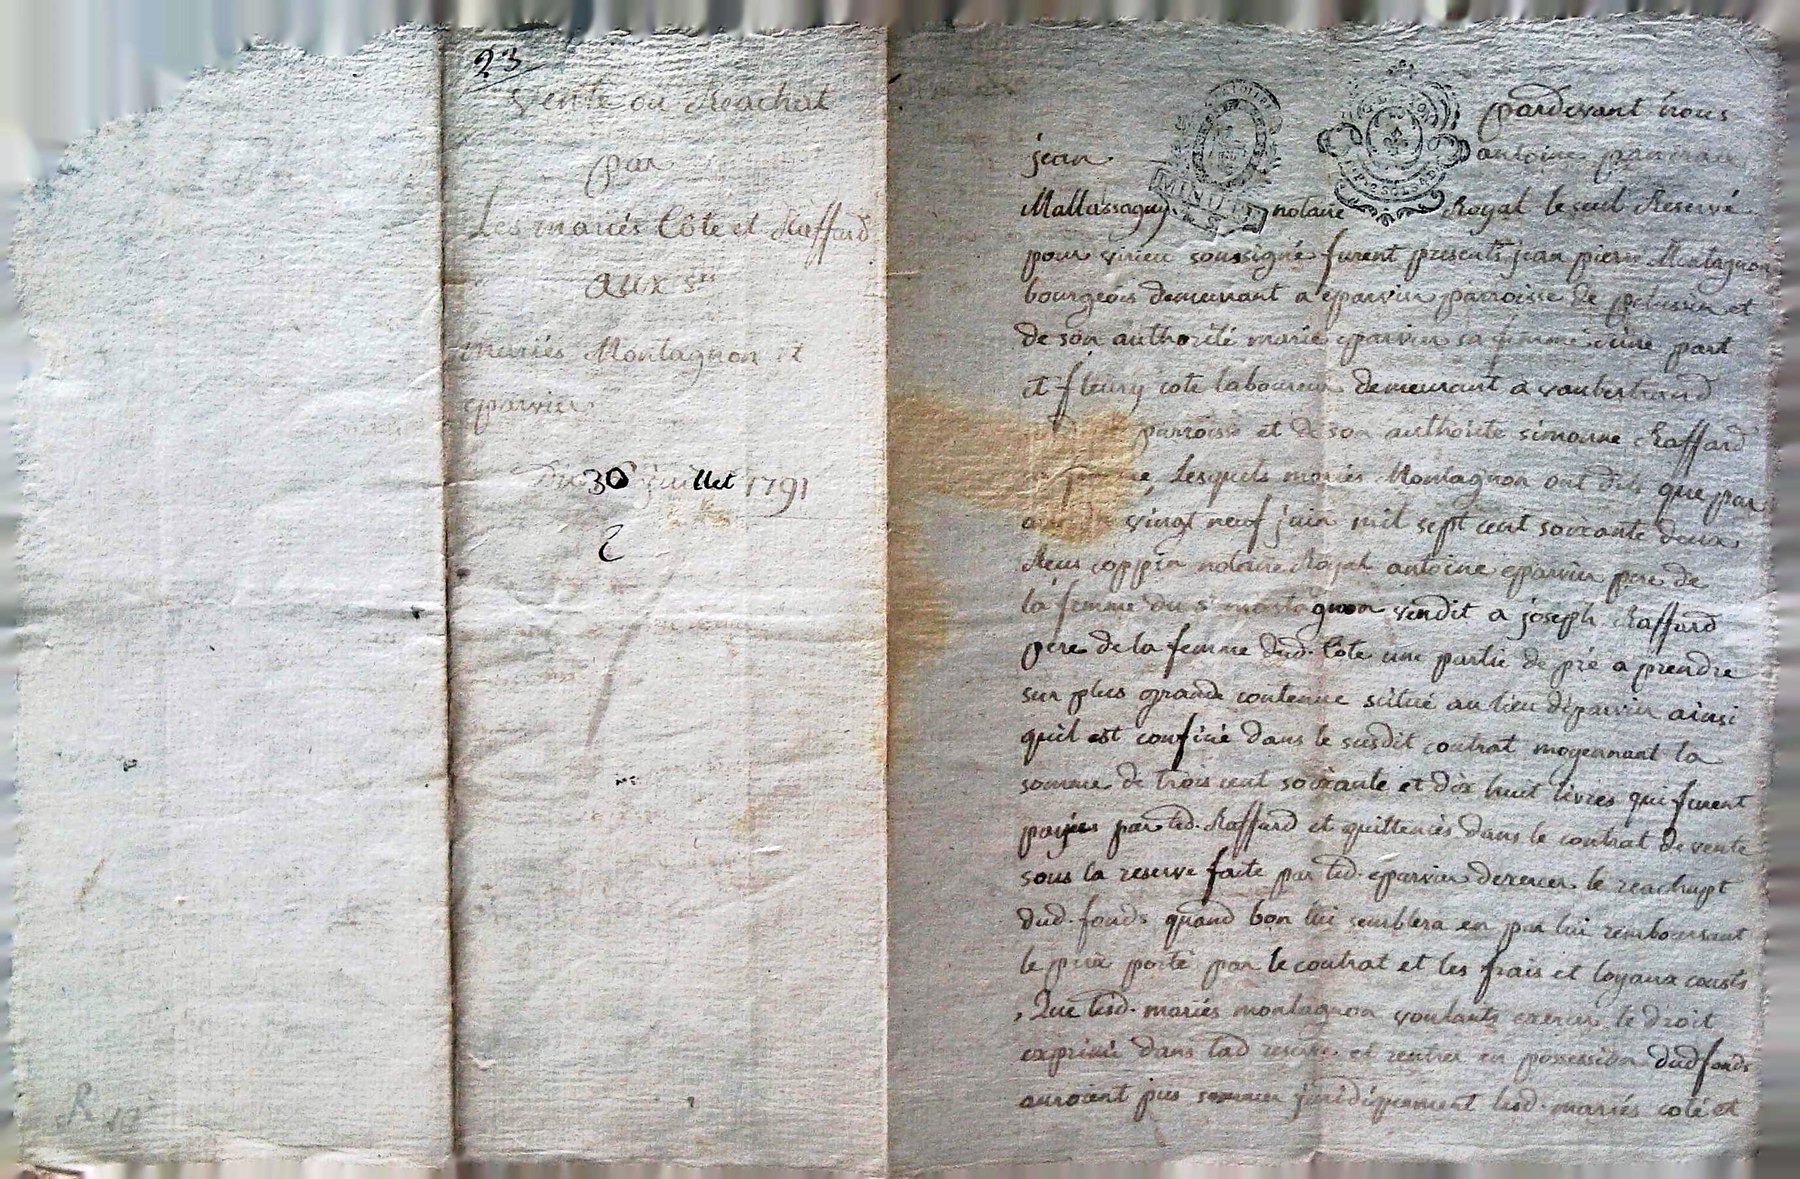 23
Vente ou Reachat
par
Les mariés Côte et Raffard
aux srs
mariés Montagnon et
eparvier
Du 30 juillet 1791
R
pardevant nous
jean antoine
MINUTE
Mallassagny notaire Royal le seul Reservé
pour virieu soussigné furent presents jean pierre Montagnon
bourgeois demeurant a eparvier parroisse de pelussin et
de son authorité marie eparvier sa femme d'une part
et fleury cote laboureur demeurant a vaubertrand
parroisse et de son authorité simonne Raffard
Lesquels mariés Montagnon ont dit que par
vingt neuf juin mil sept cent soixante deux
Reçu coppin notaire Royal antoine eparvier pere de
la femme du sr montagnon vendit a joseph Raffard
pere de la femme dud. Cote une partie de pré a prendre
sur plus grande contenue scitué au lieu d'eparvier ainsi
quil est confiné dans le susdit contrat moyennant la
somme de trois cent soixante et dix huit livres qui furent
payés par led. Raffard et quittencés dans le contrat de vente
sous la reserve faite par led. eparvier dexercer le reachapt
dud. fonds quand bon lui semblera en par lui remboursant
le prix porté par le contrat et les frais et loyaux cousts
, Que lesd. mariés montagnon voulants exercer le droit
exprimé dans lad reserve et rentrer en possession dud fonds
auroient pu sommer juridiquement lesd. mariés coté et